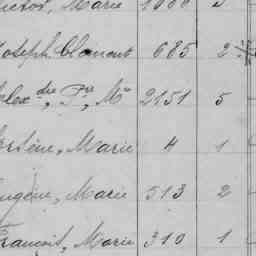 Victor, Marie 1066 3
Joseph Clément 685 2
Alex dre, Pre, Mie 2151 5
Arsène, Marie 4 1
Eugène, Marie 513 2
François, Marie 310 1